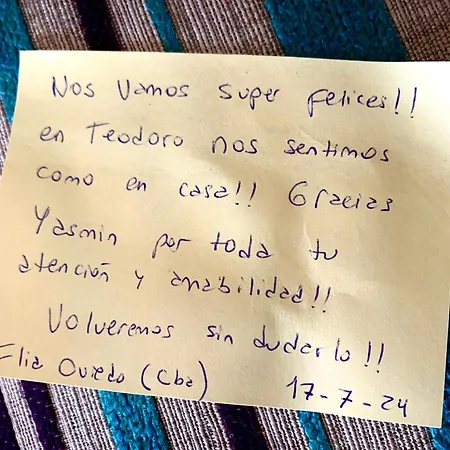 Nos Vamos super felices!!
en Teodoro nos sentimos
como en casa!! Gracias
Yasmin por toda tu
atención y amabilidad!!
Volveremos sin dudarlo!!
Flia Oviedo (Cba)
17-7-24